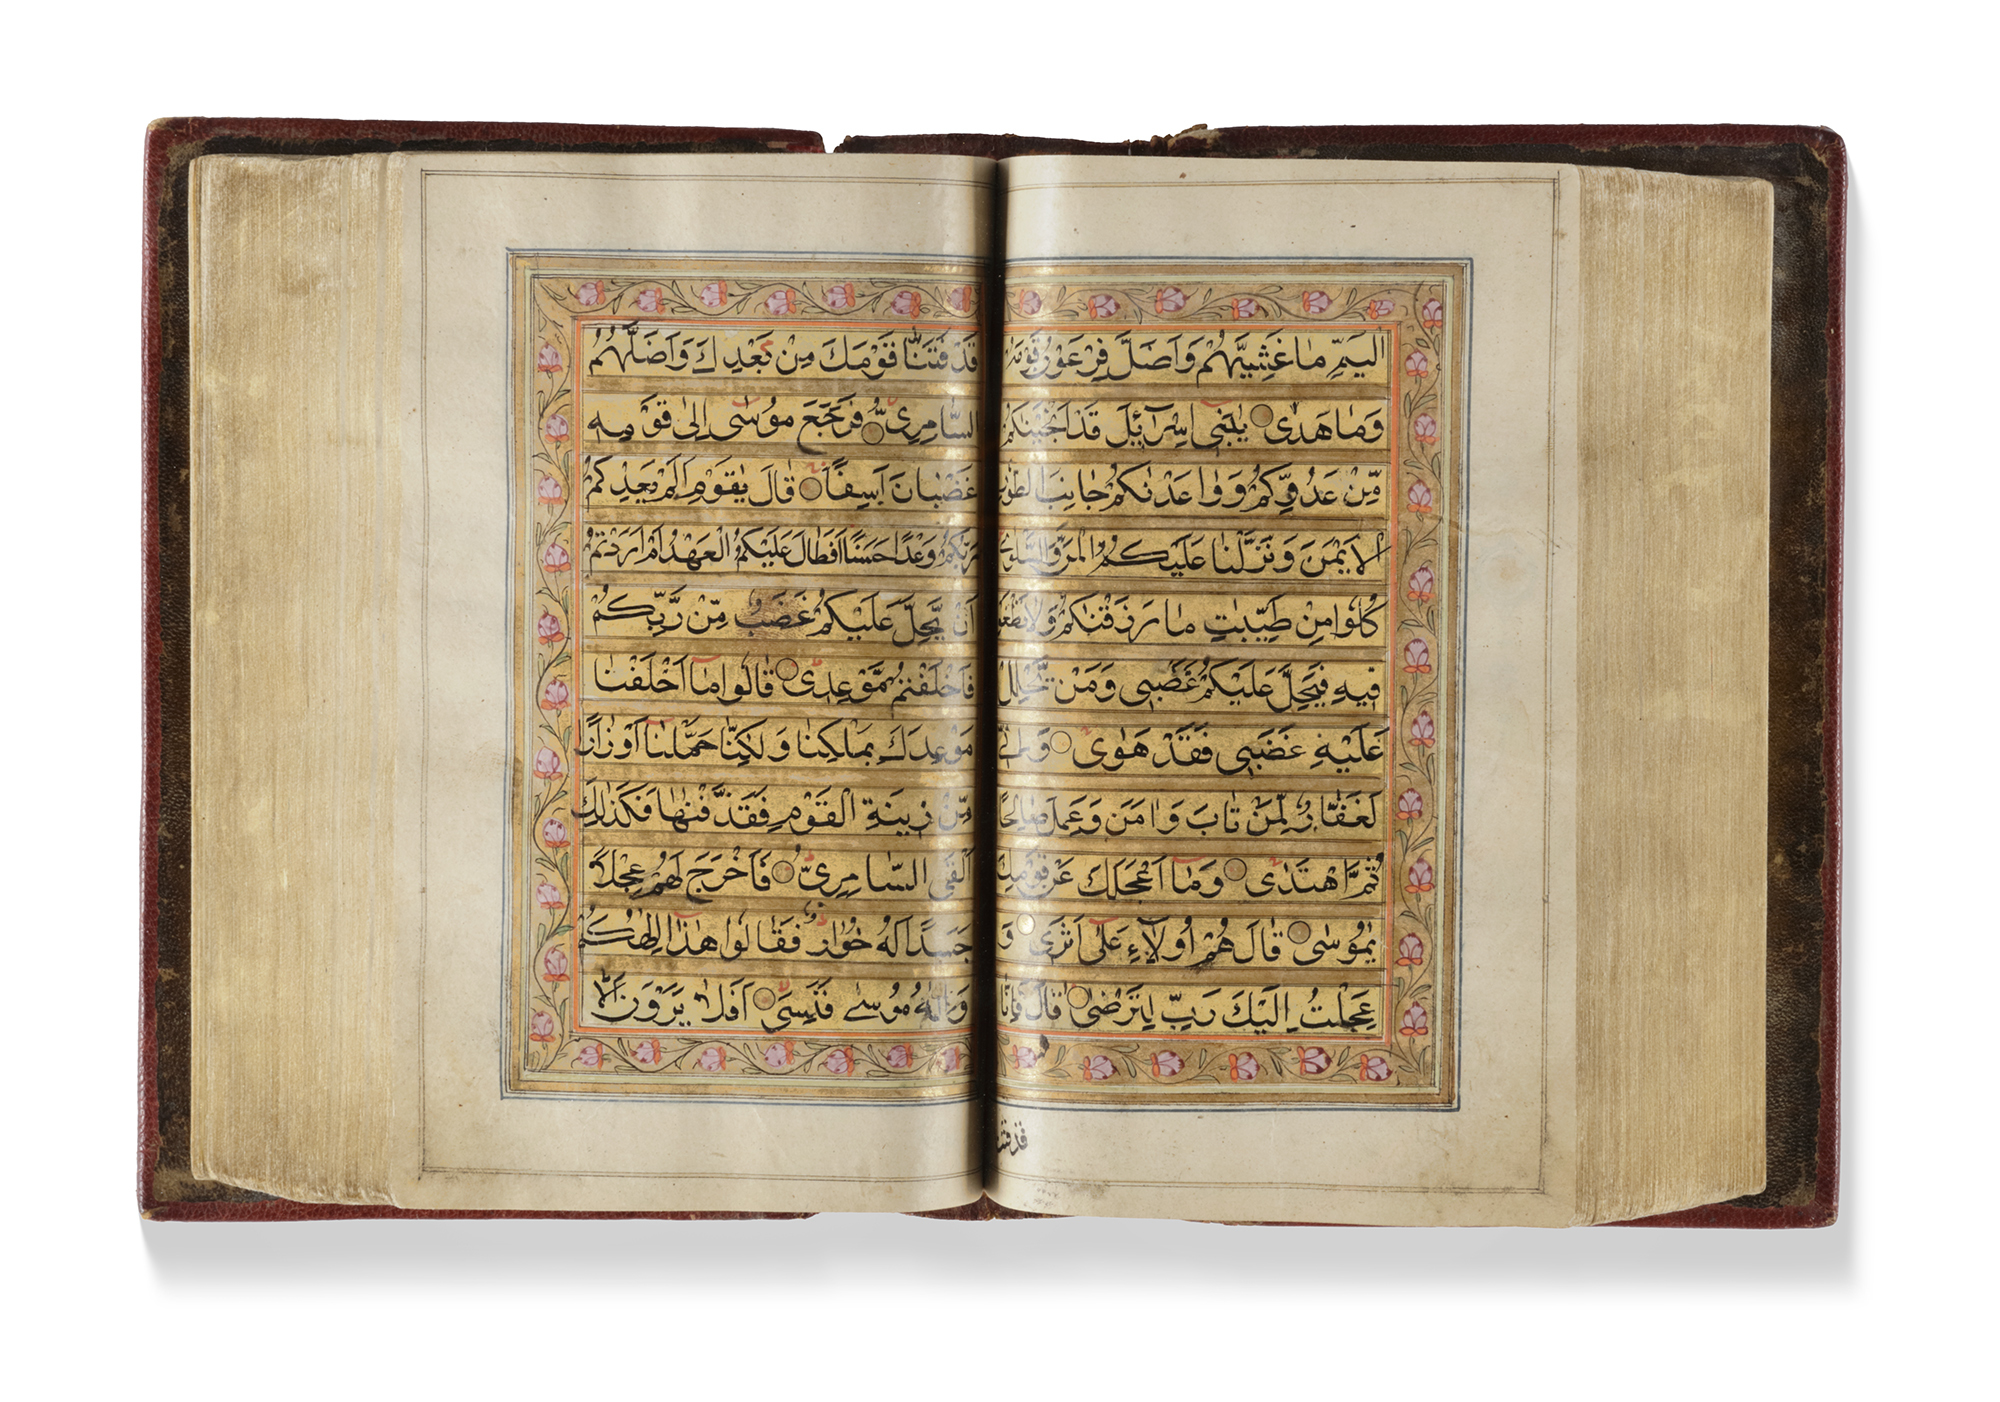 الْيَمِّ مَا غَشِيَهُمْ وَاَضَلَّ فِرْعَوْنُ قَوْمَهٗ
وَمَا هَدٰى يٰبَنِىْ اِسْرَآئِيْلَ قَدْ اَنْجَيْنٰكُمْ
مِّنْ عَدُوِّكُمْ وَوٰاعَدْنٰكُمْ جَانِبَ الطُّوْرِ
الْاَيْمَنَ وَنَزَّلْنَا عَلَيْكُمُ الْمَنَّ وَالسَّلْوٰى
كُلُوْا مِنْ طَيِّبٰتِ مَا رَزَقْنٰكُمْ وَلَا تَطْغَوْا
فِيْهِ فَيَحِلَّ عَلَيْكُمْ غَضَبِىْ وَمَنْ يَّحْلِلْ
عَلَيْهِ غَضَبِىْ فَقَدْ هَوٰى وَاِنِّىْ
لَغَفَّارٌ لِّمَنْ تَابَ وَاٰمَنَ وَعَمِلَ صَالِحًا
ثُمَّ اهْتَدٰى وَمَا اَعْجَلَكَ عَنْ قَوْمِكَ
يٰمُوْسٰى قَالَ هُمْ اُولَآءِ عَلٰٓى اَثَرِىْ وَ
عَجِلْتُ اِلَيْكَ رَبِّ لِتَرْضٰى قَالَ فَاِنَّا
قد فتنا
قَدْ فَتَنَّا قَوْمَكَ مِنْ بَعْدِكَ وَاَضَلَّهُمُ
السَّامِرِىُّ فَرَجَعَ مُوْسٰٓى اِلٰى قَوْمِهٖ
غَضْبَانَ اَسِفًا قَالَ يٰقَوْمِ اَلَمْ يَعِدْكُمْ
رَبُّكُمْ وَعْدًا حَسَنًا اَفَطَالَ عَلَيْكُمُ الْعَهْدُ اَمْ اَرَدْتُّمْ
اَنْ يَّحِلَّ عَلَيْكُمْ غَضَبٌ مِّنْ رَّبِّكُمْ
فَاَخْلَفْتُمْ مَّوْعِدِىْ قَالُوْا مَآ اَخْلَفْنَا
مَوْعِدَكَ بِمَلْكِنَا وَلٰكِنَّا حُمِّلْنَا اَوْزَارًا
مِّنْ زِيْنَةِ الْقَوْمِ فَقَذَفْنٰهَا فَكَذٰلِكَ
اَلْقَى السَّامِرِىُّ فَاَخْرَجَ لَهُمْ عِجْلًا
جَسَدًا لَّهٗ خُوَارٌ فَقَالُوْا هٰذَآ اِلٰهُكُمْ
وَاِلٰهُ مُوْسٰى فَنَسِىَ اَفَلَا يَرَوْنَ اَلَّا